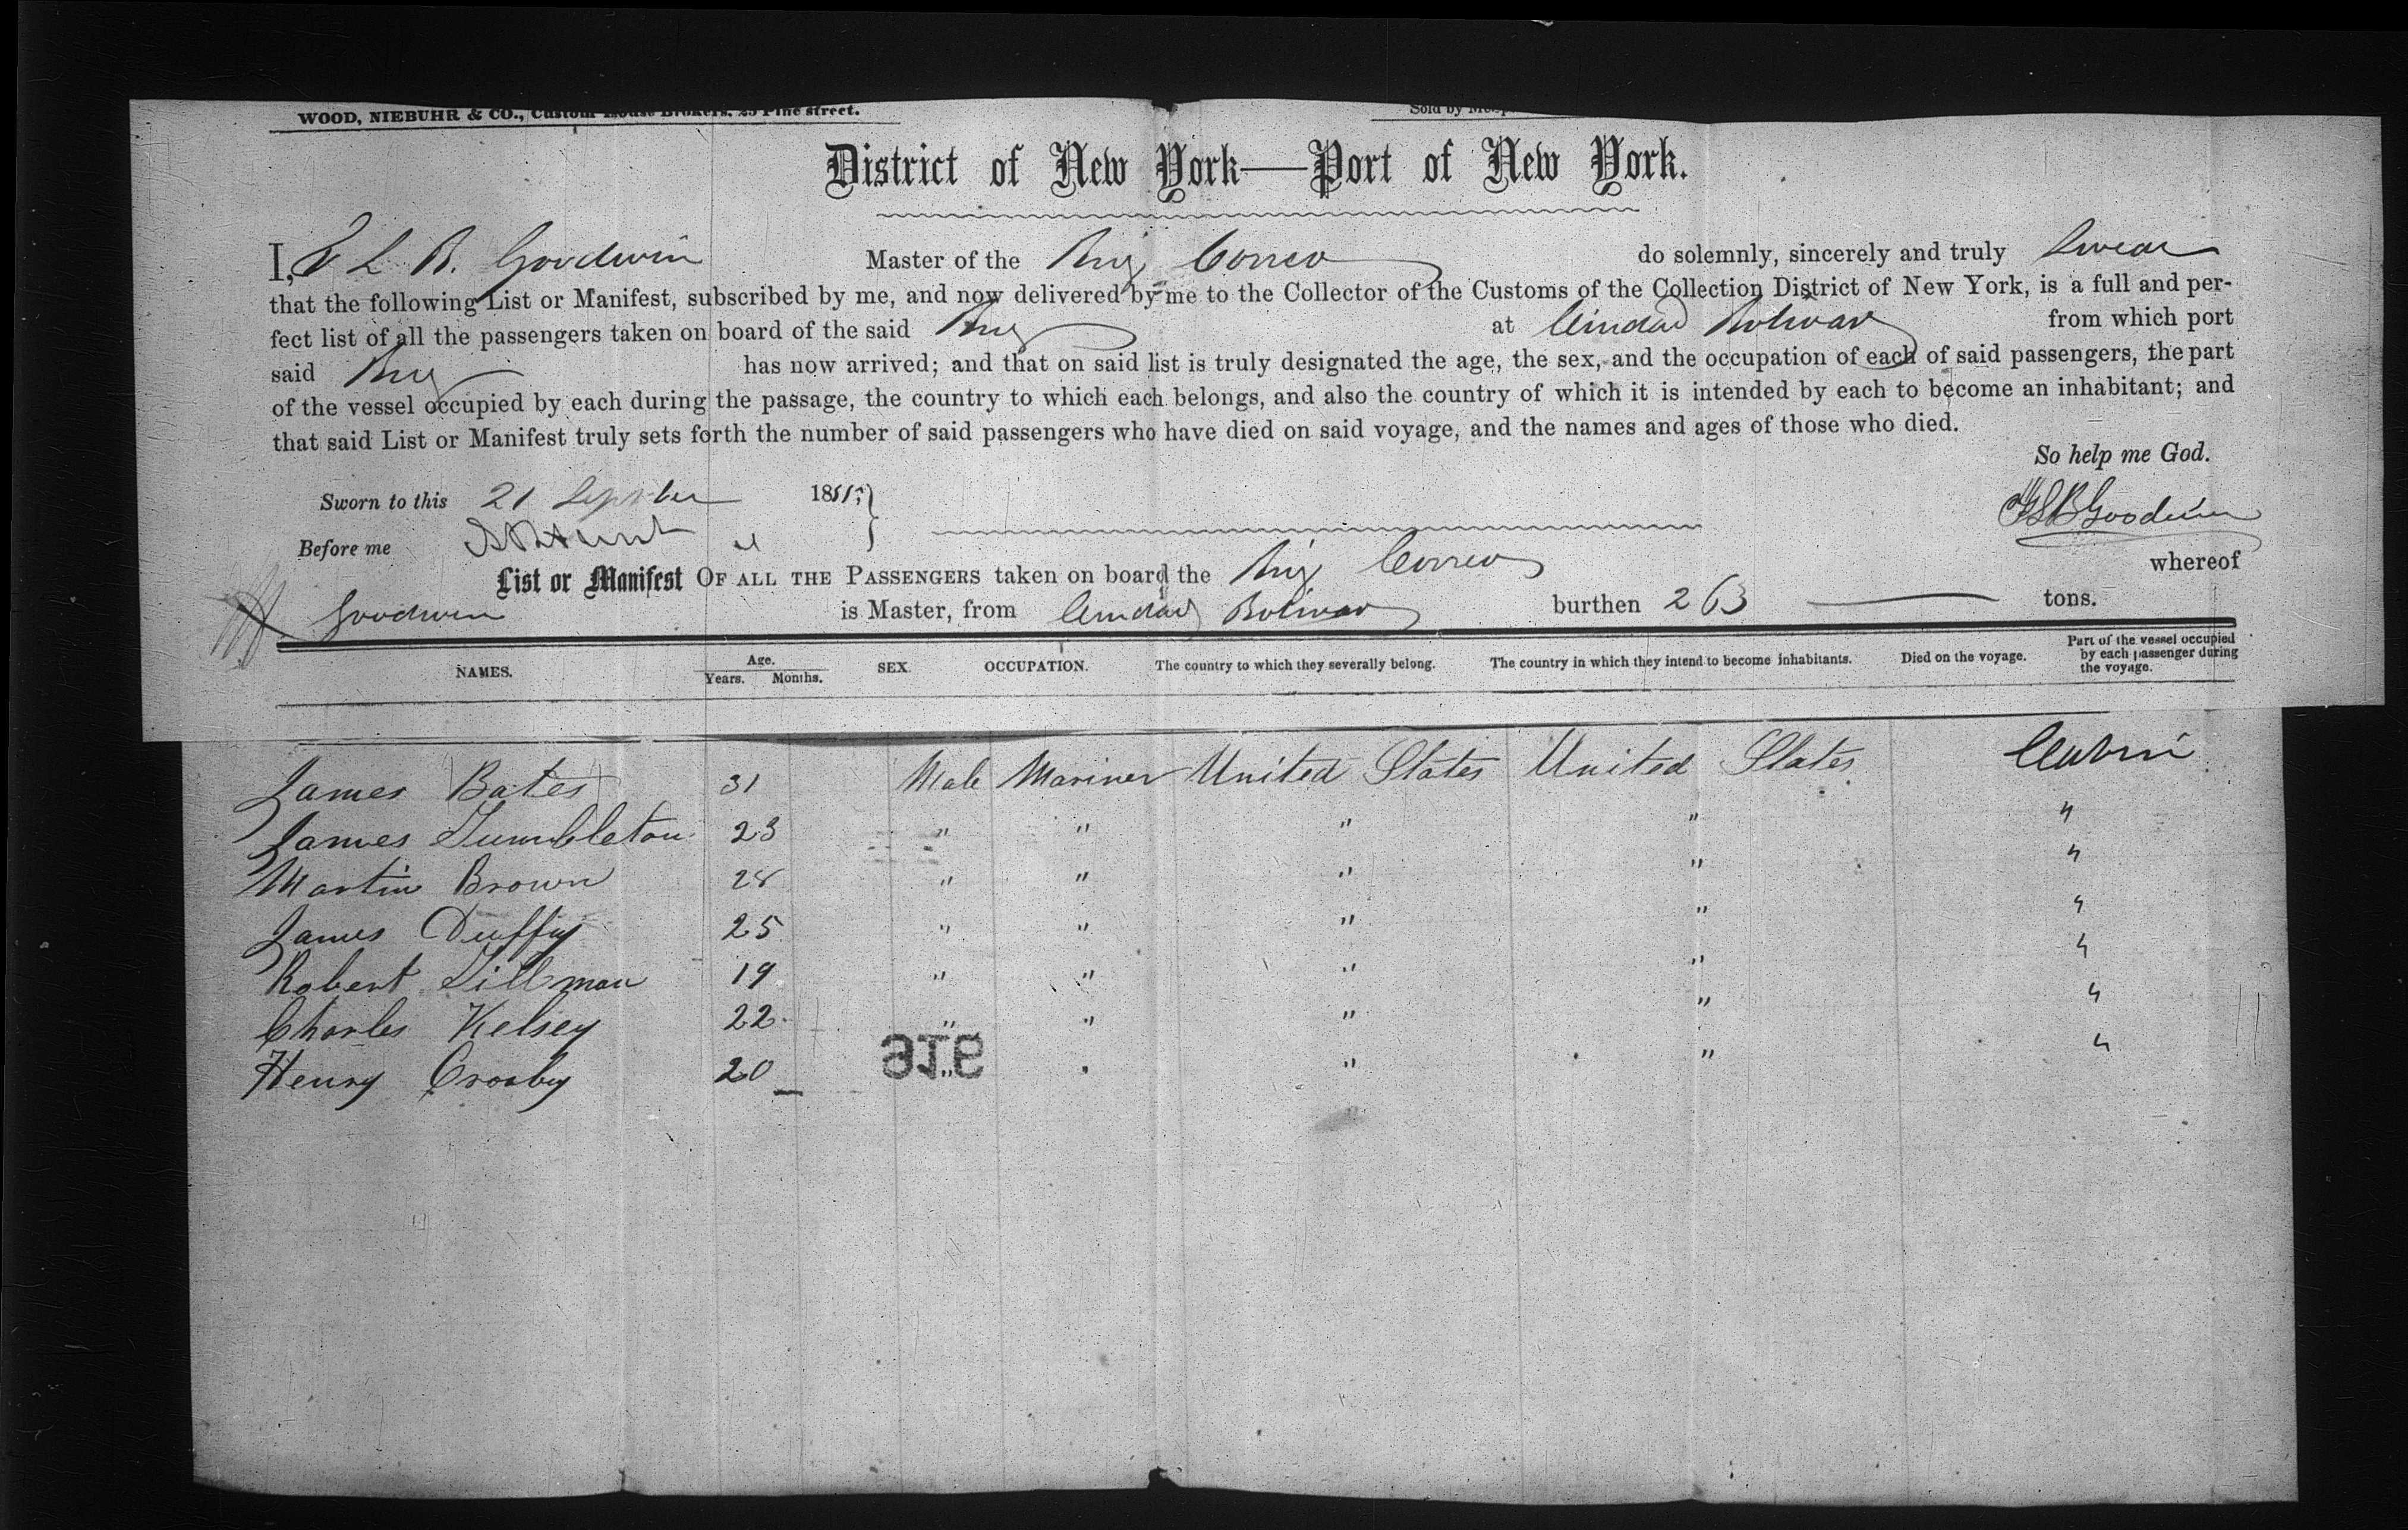 WOOD, NIEBUHR & CO., Custom House Brokers, 25 Pine street.
Sold by
District of New York—Port of New York.
I, L B. Goodwin Master of the Brig Correo do solemnly, sincerely and truly Swear
that the following List or Manifest, subscribed by me, and now delivered by me to the Collector of the Customs of the Collection District of New York, is a full and per-
fect list of all the passengers taken on board of the said Brig at Ciudad Bolivar from which port
said Brig has now arrived; and that on said list is truly designated the age, the sex, and the occupation of each of said passengers, the part
of the vessel occupied by each during the passage, the country to which each belongs, and also the country of which it is intended by each to become an inhabitant; and
that said List or Manifest truly sets forth the number of said passengers who have died on said voyage, and the names and ages of those who died.
So help me God.
Sworn to this 21 September 18
Goodwin
Before me
List or Manifest OF ALL THE PASSENGERS taken on board the Brig Correo whereof
Goodwin is Master, from Ciudad Bolivar burthen 263 tons.
NAMES. Age. Years. Months. SEX. OCCUPATION. The country to which they severally belong. The country in which they intend to become inhabitants. Died on the voyage. Part of the vessel occupied by each passenger during the voyage.
James Bates 31 Male Mariner United States United States Cabin
James Tumbleton 23 " " " " "
Martin Brown 28 " " " " "
James Duffy 25 " " " " "
Robert Tillman 19 " " " " "
Charles Kelsey 22 " " " " "
Henry Crosby 20 " " " " "
916